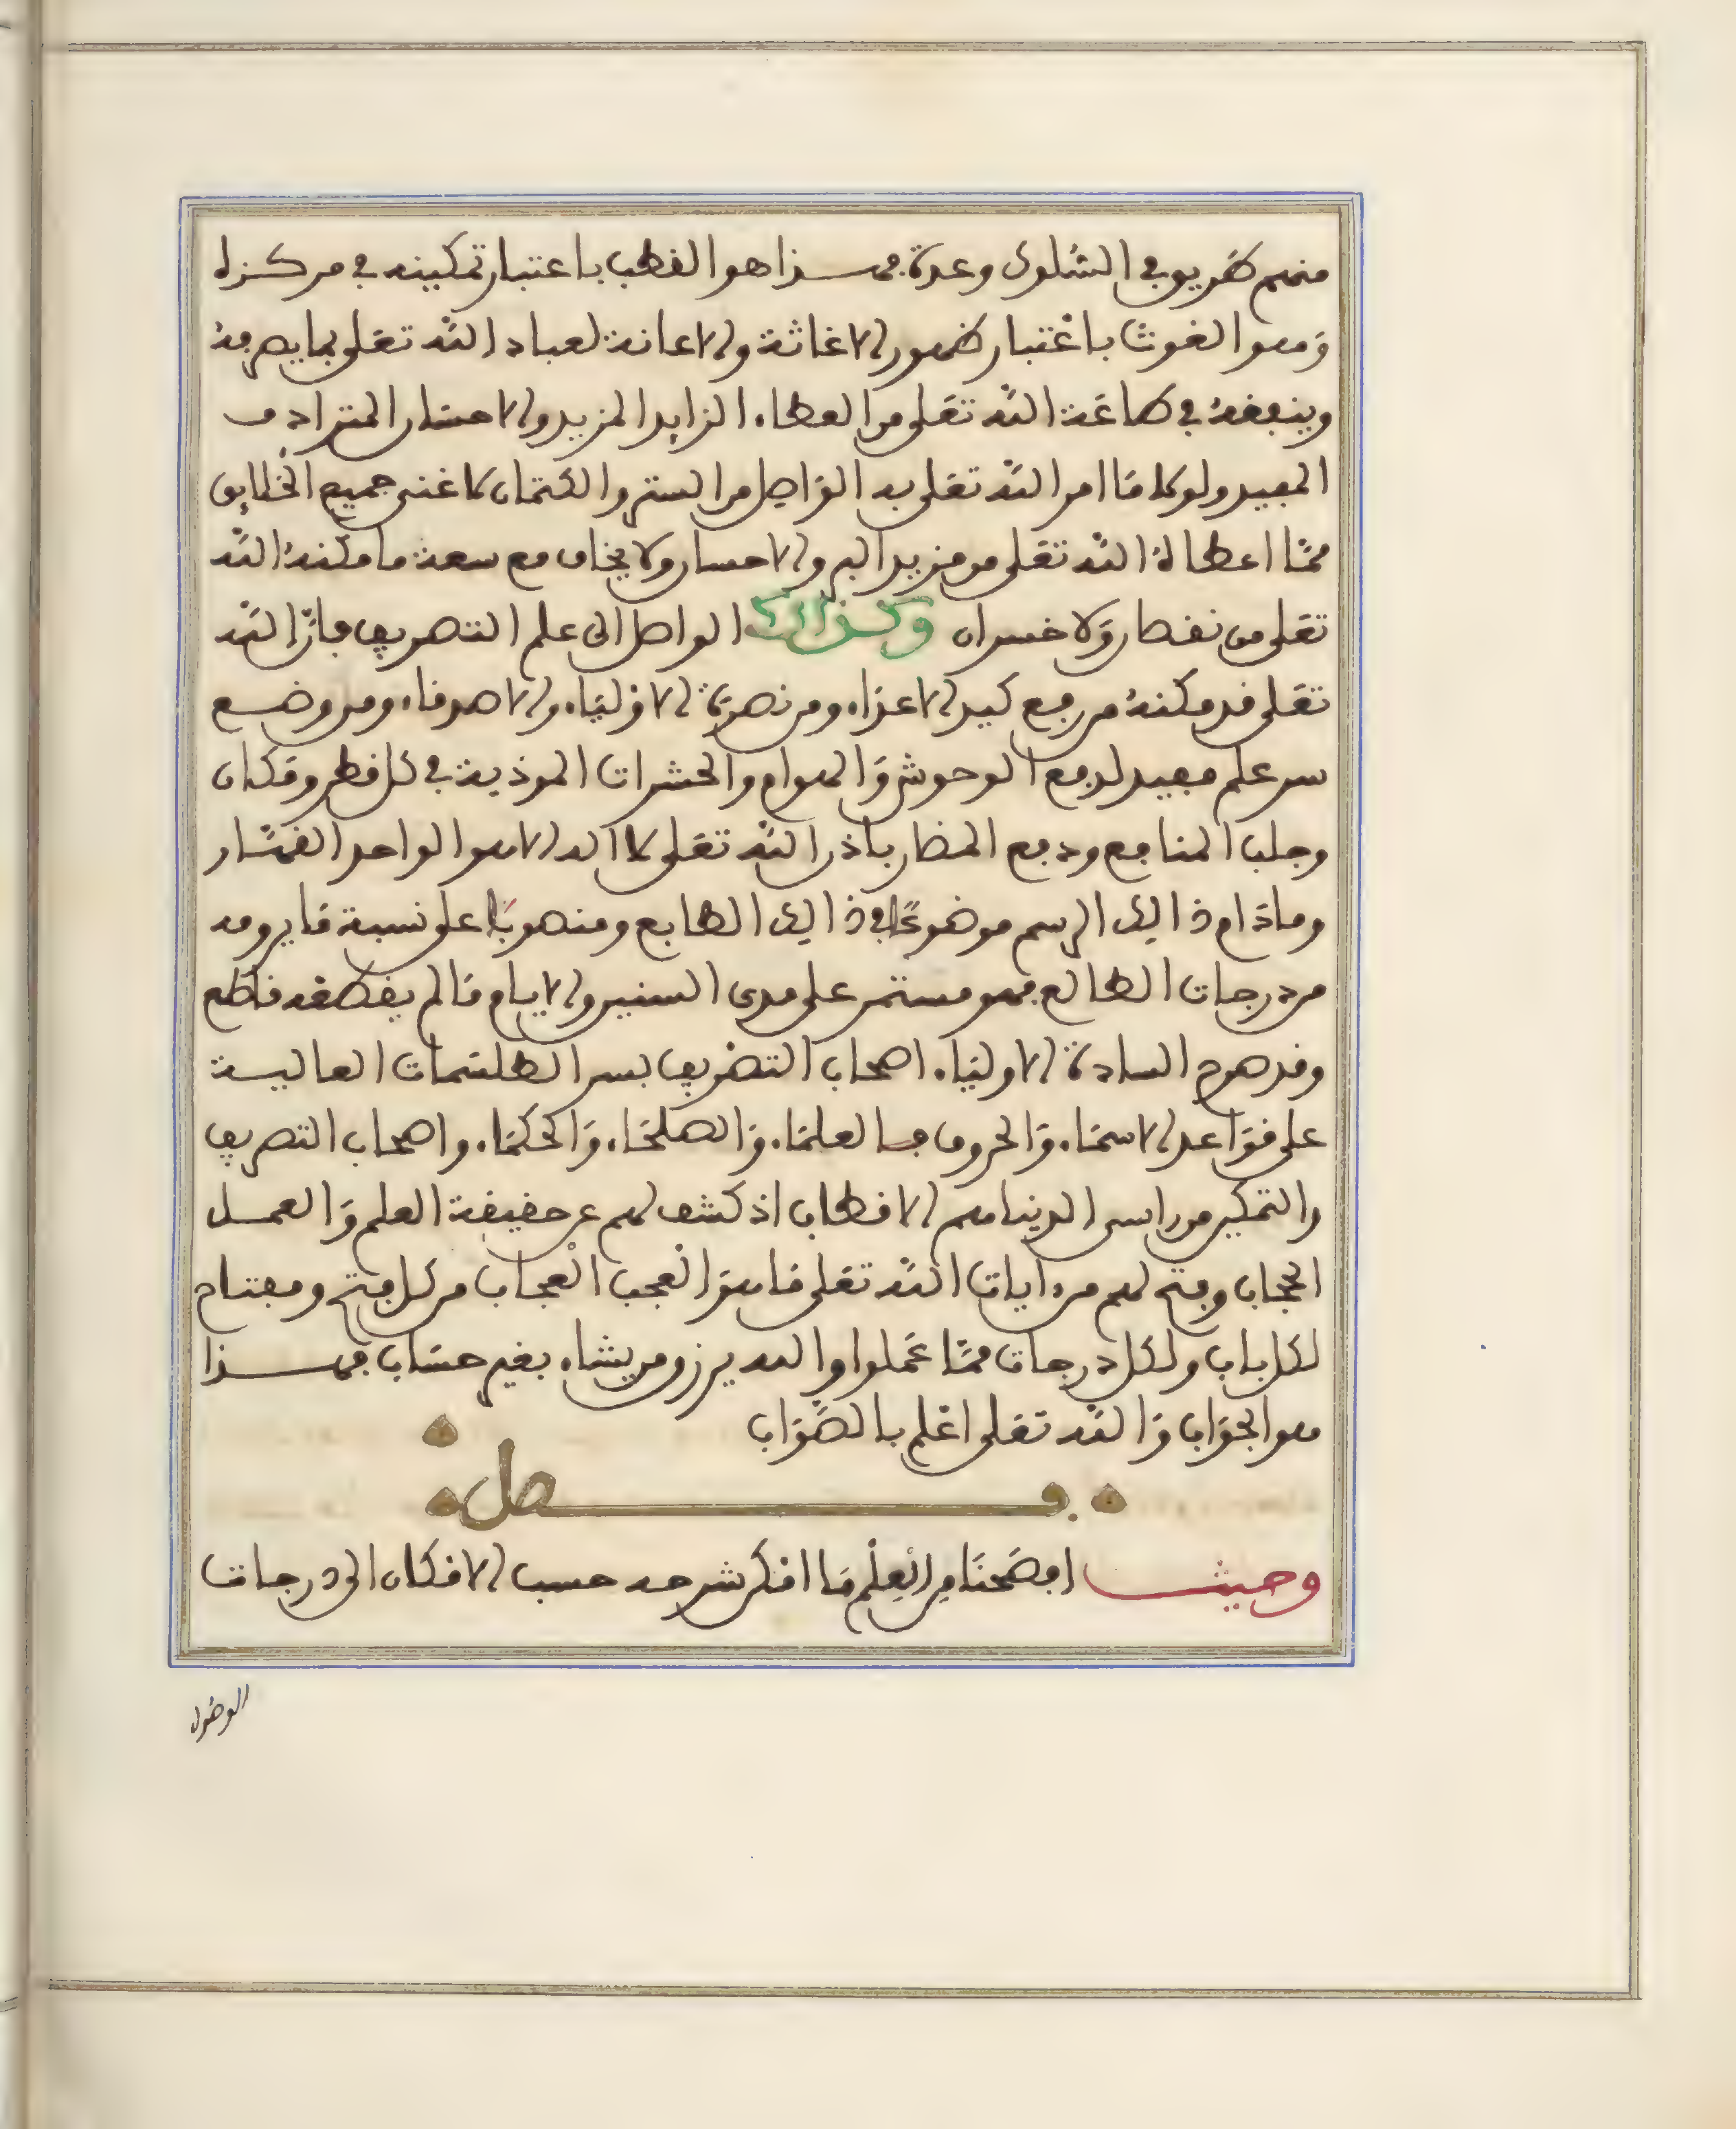 منهم طريق في السلوك وعدة فهذا هو القطب باعتبار تمكينه في مركزه
وهو الغوث باعتبار ظهور الاغاثة والاعانة لعباد الله تعلى بما يصرفه
وينفقه في طاعة الله تعلى من العطاء الزايد المزيد والاحسان المترادف
المفيد ولولا ما امر الله تعلى به الواصل من الستر والكتمان لاغنى جميع الخلايق
مما اعطاه الله تعلى من مزيد البر والاحسان ولا يخاف مع سعة ما مكنه الله
تعلى من نقصان ولا خسران وكذالك الواصل الى علم التصريف فان الله
تعلى قد مكنه من رفع كيد الاعداء ومن نصرة الاولياء والاصدقاء ومن وضع
سر علم مفيد لدفع الوحوش والهوام والحشرات الموذية في كل قطر ومكان
وجلب المنافع ودفع المضار باذن الله تعلى لا اله الا هو الواحد القهار
وما دام ذالك الرسم موضوعا في ذالك الطابع ومنصوبا على نسبة ما يرومه
من درجات الطالع فهو مستمر على مدى السنين والايام ما لم يقطعه قاطع
وقد صرح السادة الاولياء اصحاب التصريف بسر الطلسمات العالية
على قواعد الاسماء والحروف من العلماء والصلحاء والحكماء واصحاب التصريف
والتمكين من راس الدنيا هم الاقطاب اذ كشف لهم عن حقيقة العلم والعمل
الحجاب وفتح لهم من ايات الله تعلى ما هو العجب العجاب من كل فتح ومفتاح
لكل باب ولكل درجات مما عملوا والله يرزق من يشاء بغير حساب فهذا
هو الجواب والله تعلى اعلم بالصواب
فصل
وحيث افصحنا من العلم ما امكن شرحه حسب الامكان الى درجات
الوصول